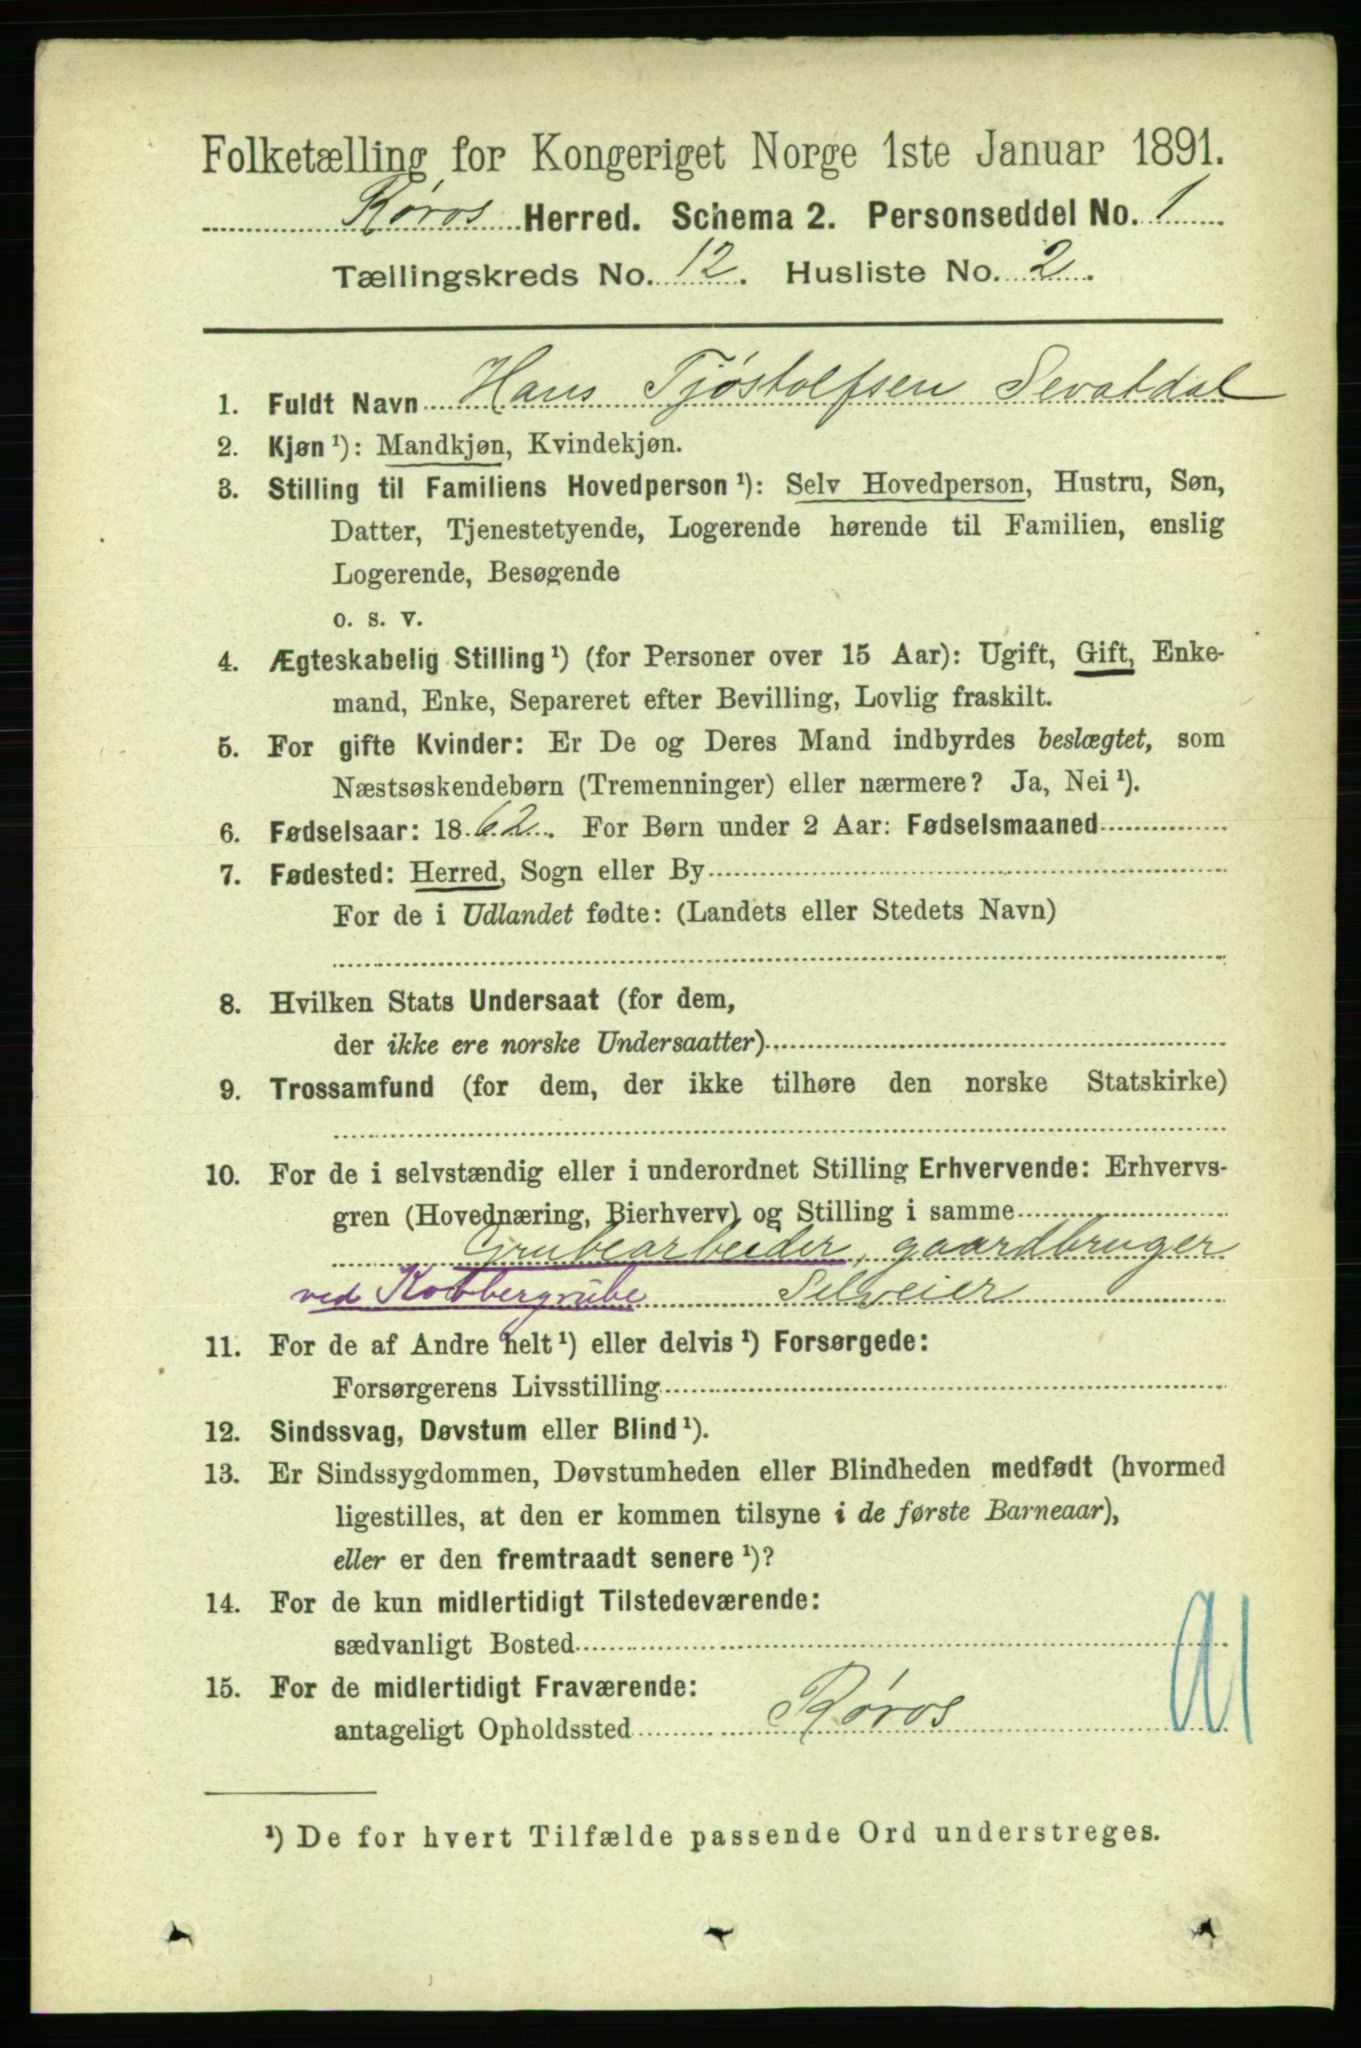 Folketælling for Kongeriget Norge 1ste Januar 1891.
Røros Herred. Schema 2. Personseddel No. 1
Tællingskreds No. 12. Husliste No. 2.
1. Fuldt Navn Hans Tjøstolfsen Sevatdal
2. Kjøn¹): Mandkjøn, Kvindekjøn.
3. Stilling til Familiens Hovedperson¹): Selv Hovedperson, Hustru, Søn,
Datter, Tjenestetyende, Logerende hørende til Familien, enslig
Logerende, Besøgende
o. s. v.
4. Ægteskabelig Stilling¹) (for Personer over 15 Aar): Ugift, Gift, Enke-
mand, Enke, Separeret efter Bevilling, Lovlig fraskilt.
5. For gifte Kvinder: Er De og Deres Mand indbyrdes beslægtet, som
Næstsøskendebørn (Tremenninger) eller nærmere? Ja, Nei¹).
6. Fødselsaar: 1862. For Børn under 2 Aar: Fødselsmaaned
7. Fødested: Herred, Sogn eller By
For de i Udlandet fødte: (Landets eller Stedets Navn)
8. Hvilken Stats Undersaat (for dem,
der ikke ere norske Undersaatter)
9. Trossamfund (for dem, der ikke tilhøre den norske Statskirke)
10. For de i selvstændig eller i underordnet Stilling Erhvervende: Erhvervs-
gren (Hovednæring, Bierhverv) og Stilling i samme
Grubearbeider, gaardbruger
ved Kobbergrube Selveier
11. For de af Andre helt¹) eller delvis¹) Forsørgede:
Forsørgerens Livsstilling
12. Sindssvag, Døvstum eller Blind¹).
13. Er Sindssygdommen, Døvstumheden eller Blindheden medfødt (hvormed
ligestilles, at den er kommen tilsyne i de første Barneaar),
eller er den fremtraadt senere¹)?
14. For de kun midlertidigt Tilstedeværende:
sædvanligt Bosted
15. For de midlertidigt Fraværende:
antageligt Opholdssted Røros
¹) De for hvert Tilfælde passende Ord understreges.